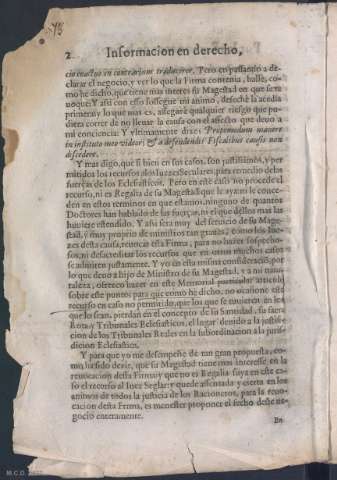 2 Informacion en derecho,
cio exactus in contrarium traduceret. Pero en passando a de-
clarar el negocio, y ver lo que la Firma contenia, hallè, co-
mo he dicho, que tiene mas interes su Magestad en que se re
uoque: Y assi con esso sosseguè mi animo, desechè la acedia
primera y lo que mas es, asegurè qualquier riesgo que pu-
diera correr de no lleuar la causa con el afecto que deuo a
mi conciencia: Y vltimamente dixe: Propemodum manere
in instituto meo videor; & a defendendis Fiscalibus causis non
discedere.
Y mas digo, que si bien en sus casos, son justissimos, y per
mitidos los recursos a los Iuezes Seculares, para remedio de las
fuerças de los Eclesiasticos. Pero en este caso no procede el
recurso, ni es Regalia de su Magestad que le ayan de conce-
der en estos terminos en que estamos, ninguno de quantos
Doctores han hablado de las fuerças, ni el que dellos mas las
huuiere estendido. Y assi serà muy del seruicio de su Mage-
stad, y muy proprio de ministros tan graues, como los Iue-
zes desta causa, reuocar esta Firma, para no hazer sospecho-
sos, ni desacreditar los recursos que en otros muchos casos
se admiten justamente. Y yo en esta misma consideraciõ, por
lo que deuo a hijo de Ministro de su Magestad, y a mi natu-
raleza, ofrezco hazer en este Memorial particular articulo
sobre este punto: para que como he dicho, no ocasione este
recurso en caso no permitido, que los que se tuuieren en los
que lo sean, pierdan en el concepto de su Santidad, su sacra
Rota, y Tribunales Eclesiasticos, el lugar deuido a la justifi-
cion de los Tribunales Reales en la subordinacion a la juris-
dicion Eclesiastica.
Y para que yo me desempeñe de tan gran propuesta, co-
mo ha sido dezir, que su Magestad tiene mas interesse en la
reuocacion desta Firma: y que no es Regalia suya en este ca-
so el recurso al Iuez Seglar: y quede assentada y cierta en los
animos de todos la justicia de los Racioneros, para la reuo-
cacion desta Firma, es menester proponer el hecho deste ne-
gocio enteramente.
En
M.C.D. 2022